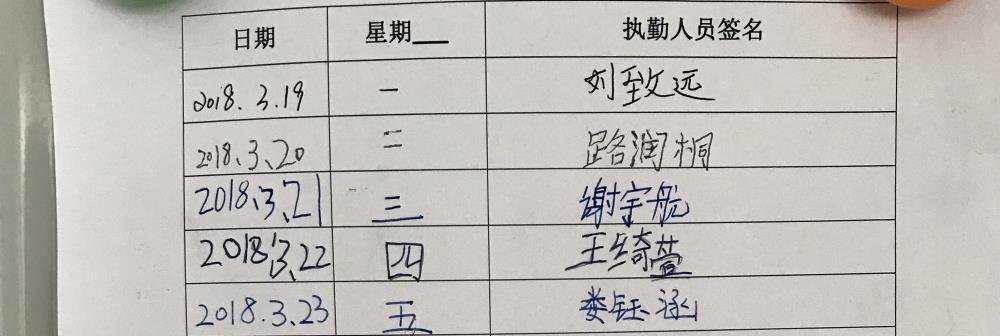 日期 星期__ 执勤人员签名
2018.3.19 一 刘致远
2018.3.20 二 路润桐
2018.3.21 三 谢宇航
2018.3.22 四 王绮萱
2018.3.23 五 娄钰涵